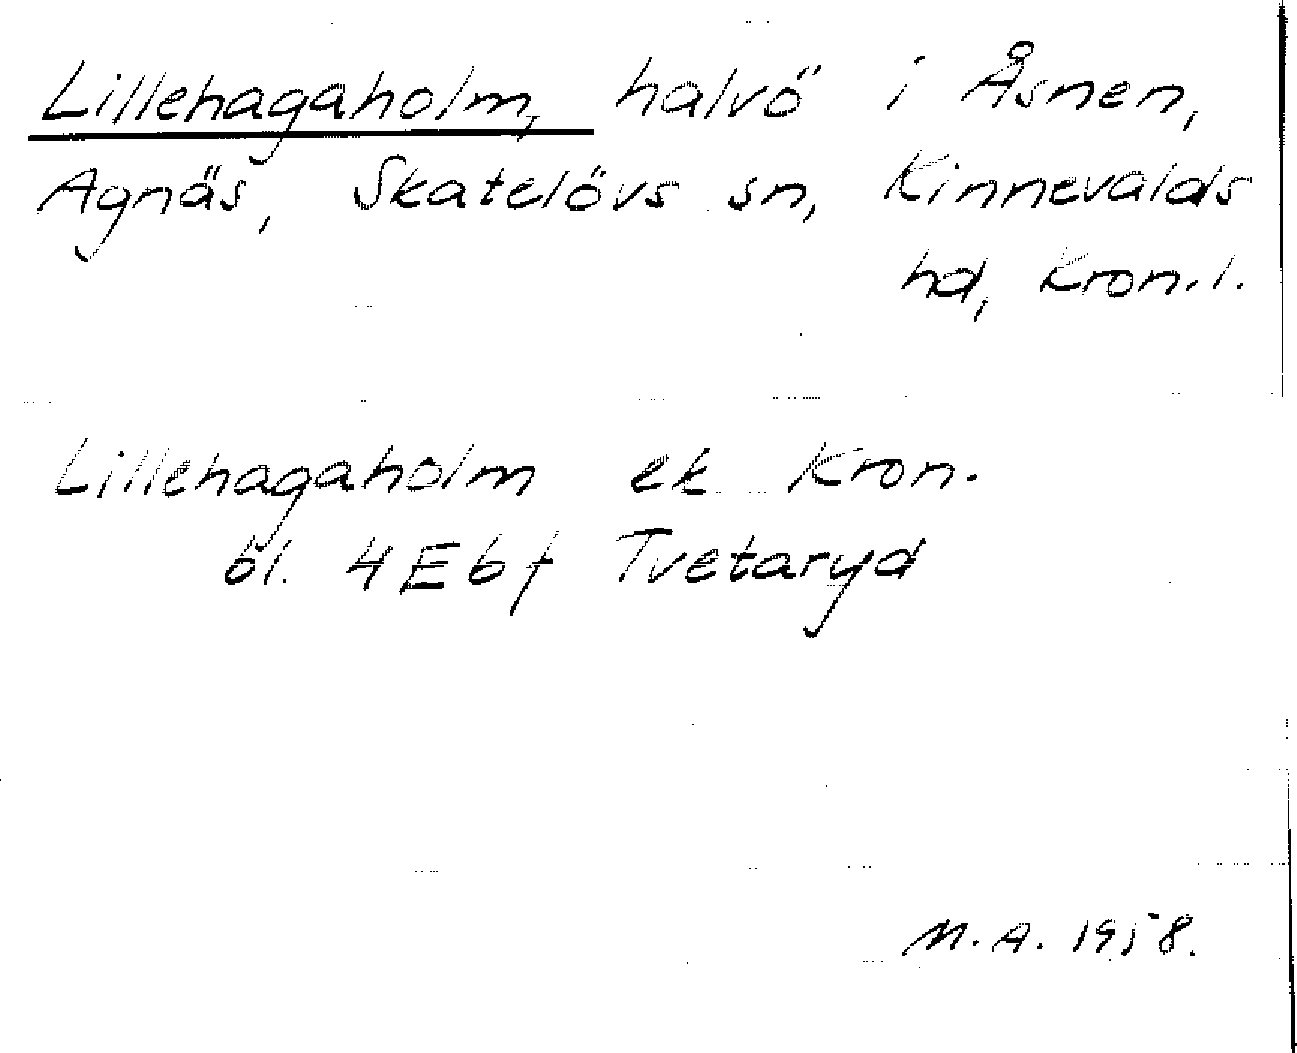 Lillehagaholm, halvö i Åsnen,
Agnäs, Skatelövs sn, Kinnevalds
hd, Kron.l.
Lillehagaholm ek Kron.
bl. 4E6f Tvetaryd
M.A. 1958.